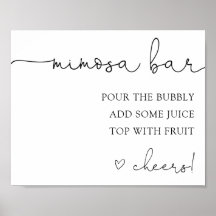 mimosa bar
POUR THE BUBBLY
ADD SOME JUICE
TOP WITH FRUIT
cheers!